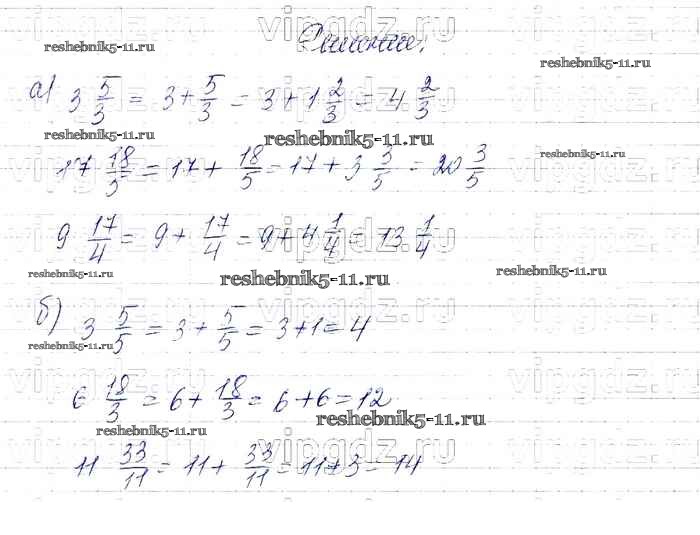 vipgdz.ru vipgdz.ru
Решение:
reshebnik5-11.ru reshebnik5-11.ru
а) 3 5/3 = 3 + 5/3 = 3 + 1 2/3 = 4 2/3
reshebnik5-11.ru reshebnik5-11.ru
reshebnik5-11.ru
17 18/5 = 17 + 18/5 = 17 + 3 3/5 = 20 3/5
vipgdz.ru vipgdz.ru
9 17/4 = 9 + 17/4 = 9 + 4 1/4 = 13 1/4
reshebnik5-11.ru reshebnik5-11.ru reshebnik5-11.ru
vipgdz.ru vipgdz.ru
б) 3 5/5 = 3 + 5/5 = 3 + 1 = 4
reshebnik5-11.ru
vipgdz.ru vipgdz.ru
6 18/3 = 6 + 18/3 = 6 + 6 = 12
reshebnik5-11.ru reshebnik5-11.ru
vipgdz.ru vipgdz.ru
11 33/11 = 11 + 33/11 = 11 + 3 = 14